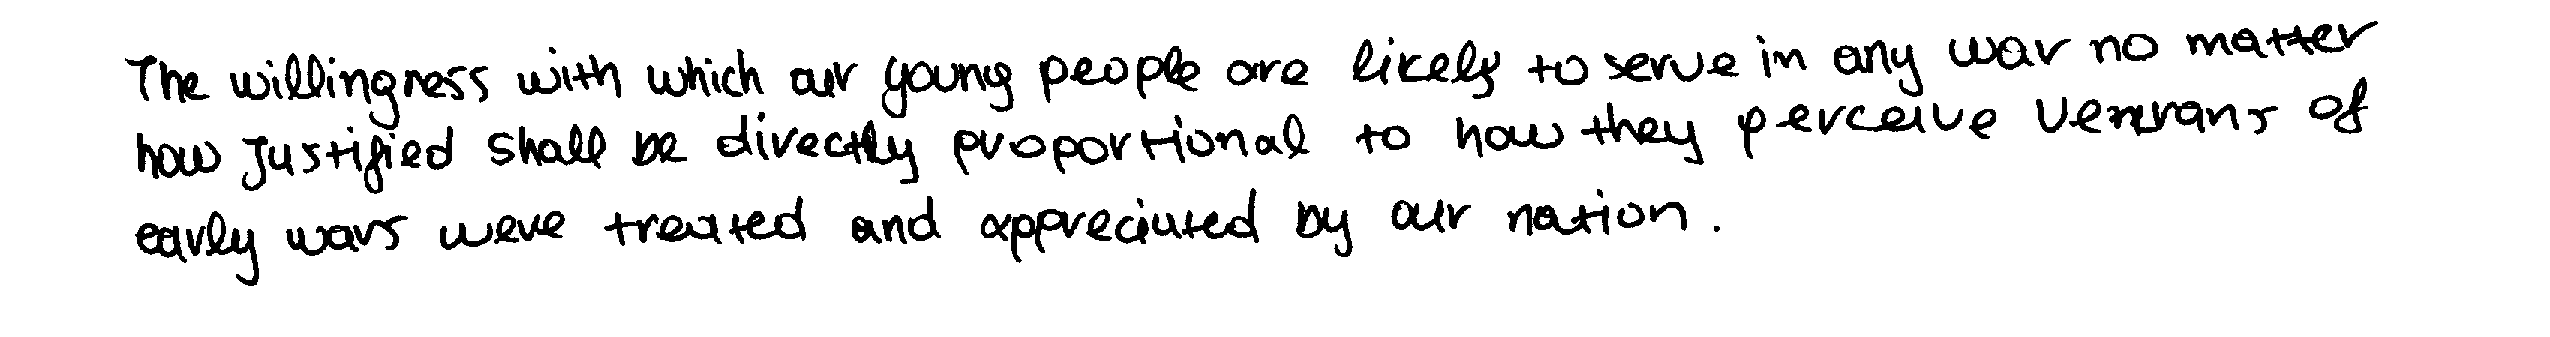 The willingness with which our young people are likely to serve in any war no matter
how justified shall be directly proportional to how they perceive veterans of
early wars were treated and appreciated by our nation.